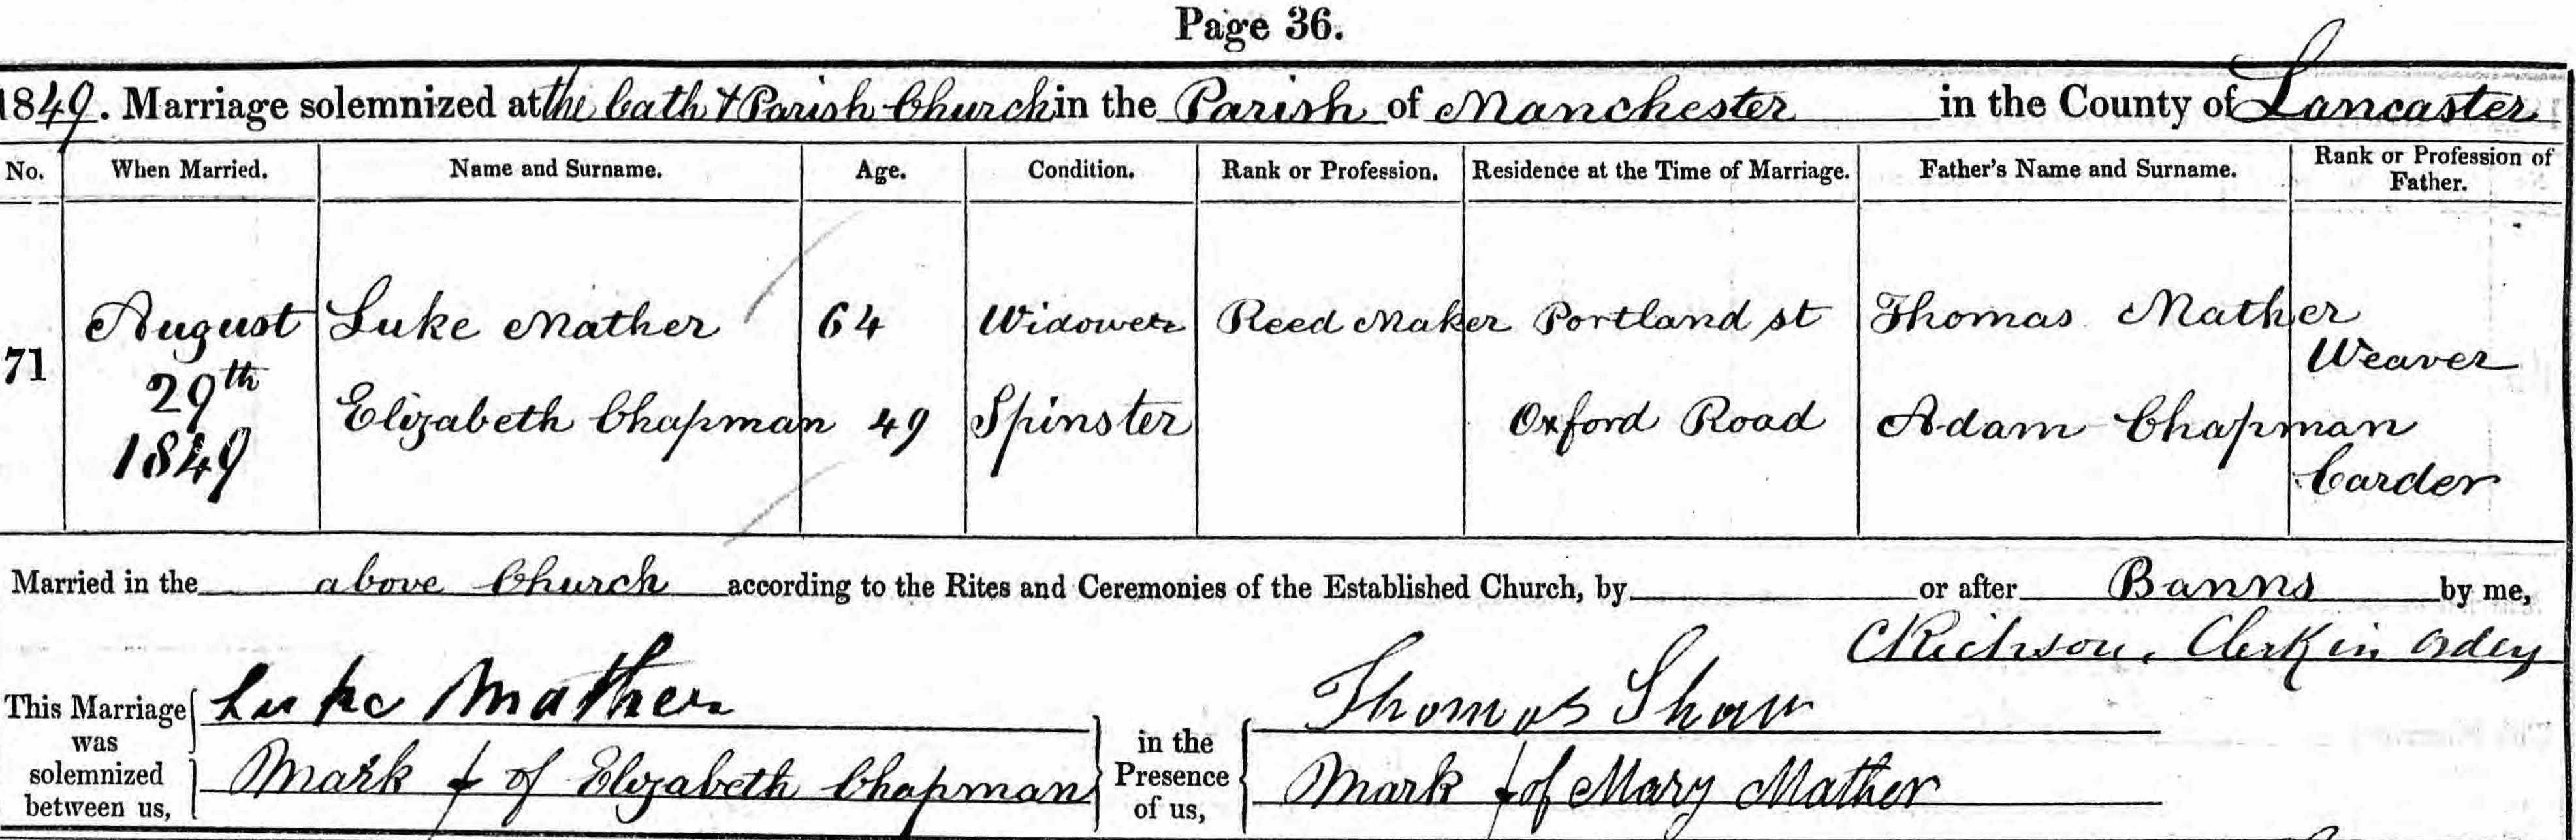 Page 36.
1849. Marriage solemnized at the Cath & Parish Church in the Parish of Manchester in the County of Lancaster
No. When Married. Name and Surname. Age. Condition. Rank or Profession. Residence at the Time of Marriage. Father's Name and Surname. Rank or Profession of Father.
71 August 29th 1849
Luke Mather 64 Widower Reed Maker Portland st Thomas Mather Weaver
Elizabeth Chapman 49 Spinster Oxford Road Adam Chapman Carder
Married in the above Church according to the Rites and Ceremonies of the Established Church, by or after Banns by me,
C Richson, Clerk in Ordes
This Marriage was solemnized between us, Luke Mather
Mark of Elizabeth Chapman
in the Presence of us, Thomas Shaw
Mark of Mary Mather